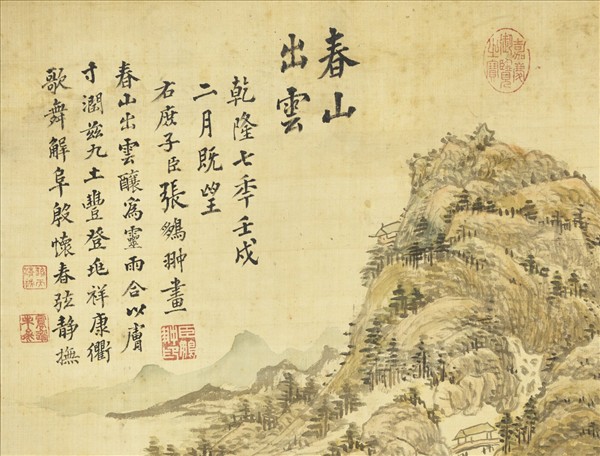 嘉慶御覽之寶
春山
出雲
乾隆七秊壬戌
二月既望
右庶子臣張鵬翀畫
春山出雲釀爲靈雨合以膚
寸潤茲九土豐登兆祥康衢
歌舞解阜殷懷春弦靜撫